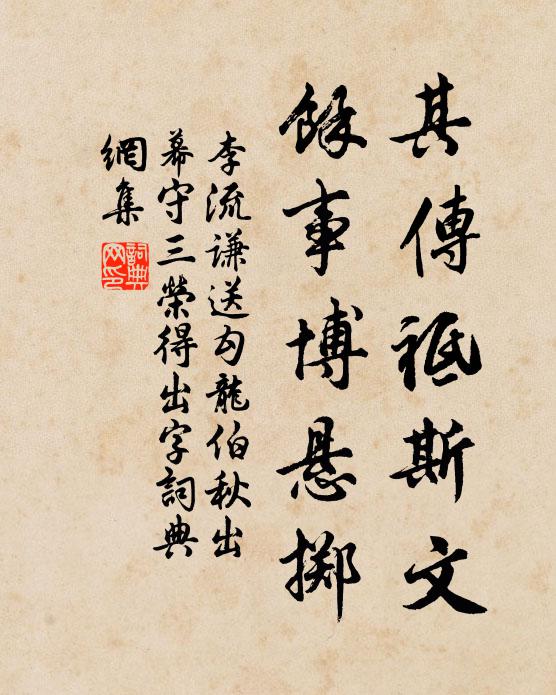 其傳祗斯文
餘事博悬掷
李流谦送勾龍伯秋出
幕守三榮得出字詞典
網集
詞典
网印